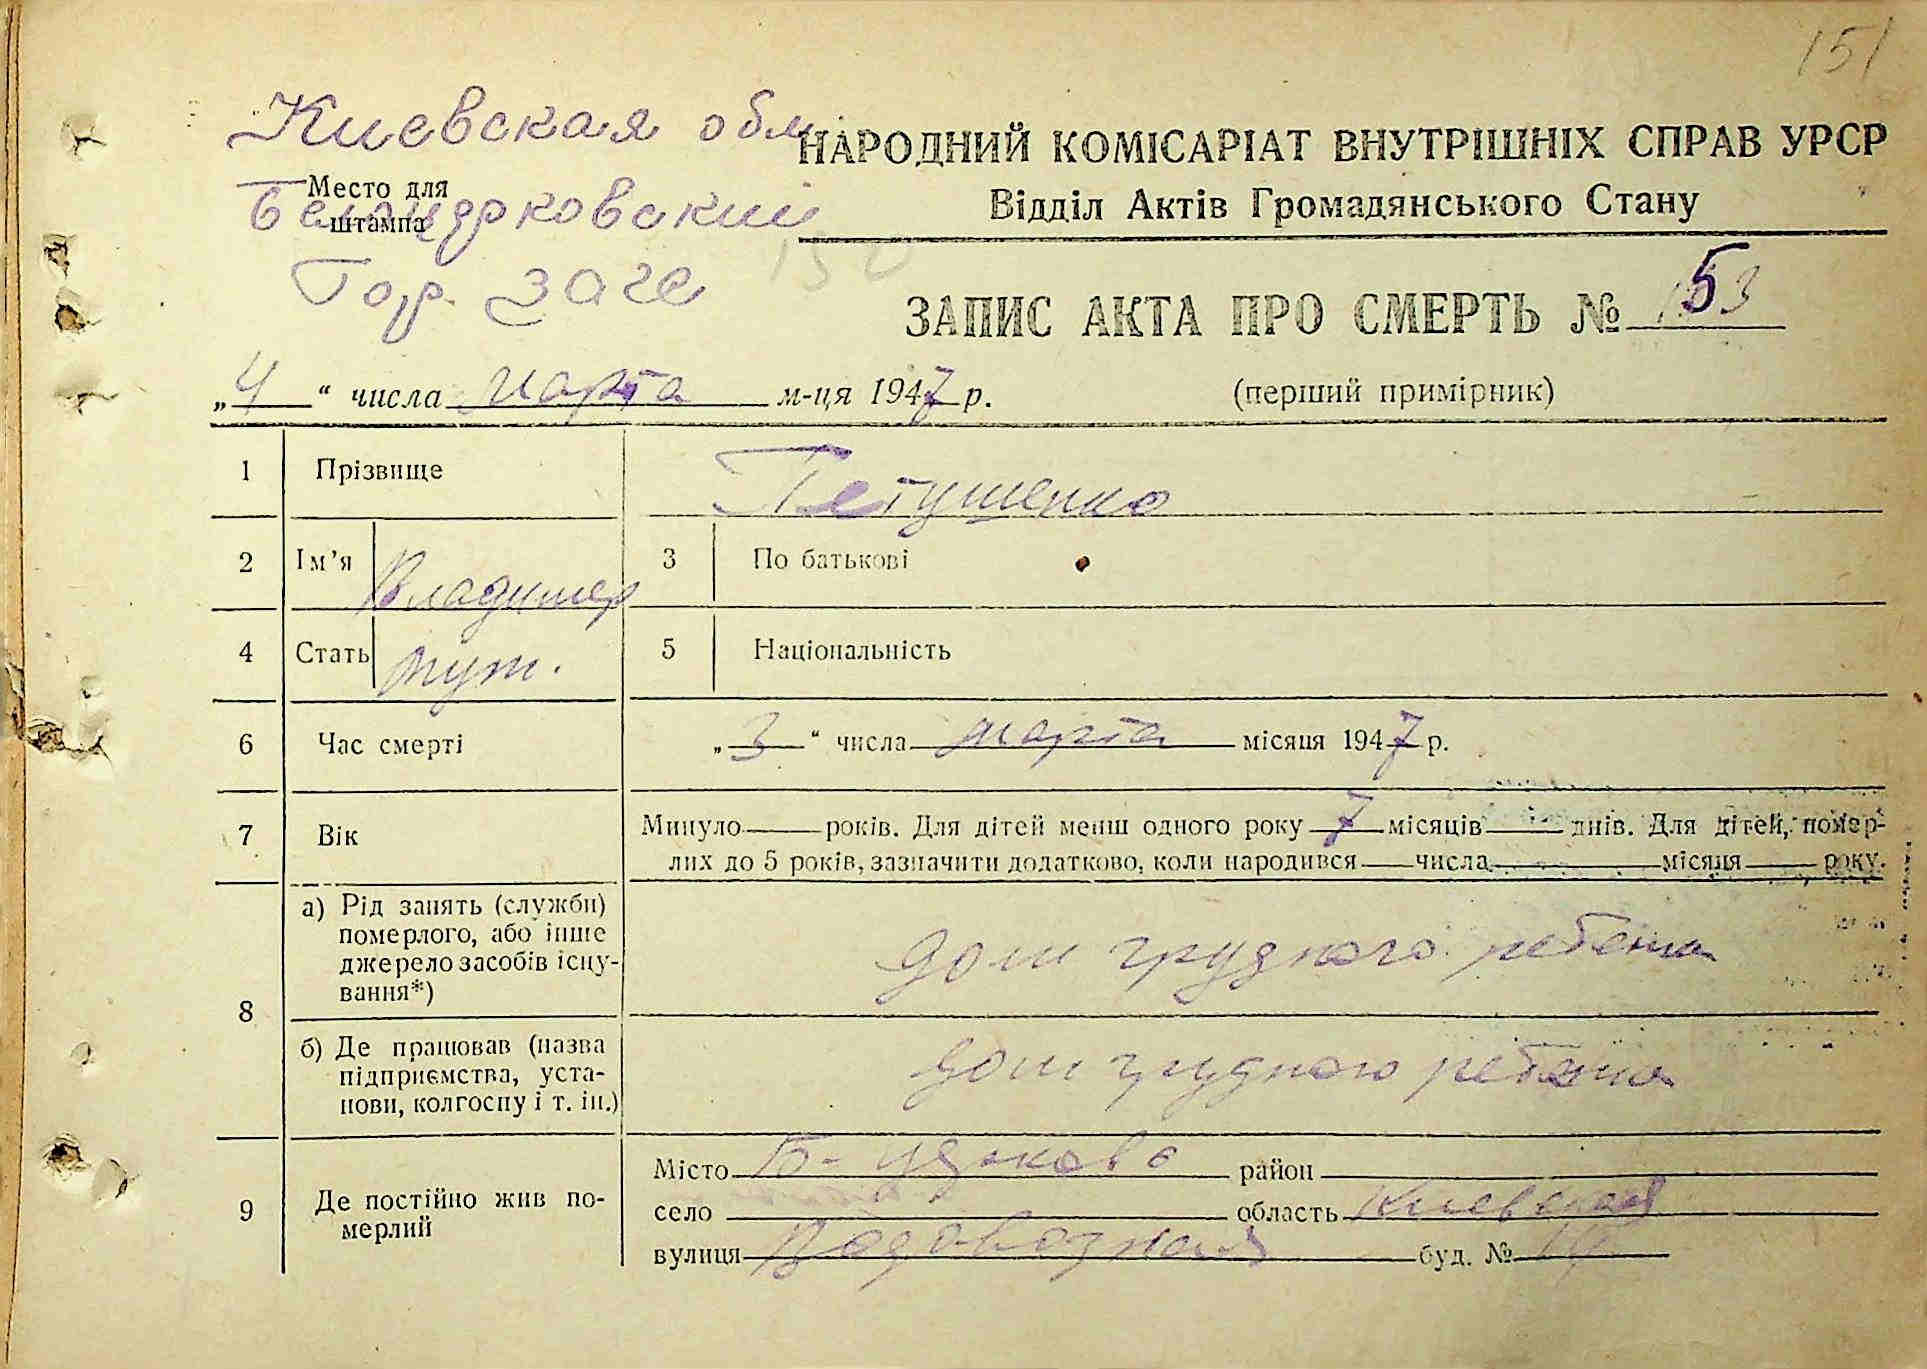 151
Киевская обл.
НАРОДНИЙ КОМІСАРІАТ ВНУТРІШНІХ СПРАВ УРСР
Место для
штампа
Белоцерковский
Відділ Актів Громадянського Стану
Гор. загс
150
ЗАПИС АКТА ПРО СМЕРТЬ № 153
„4“ числа марта м-ця 1947 р. (перший примірник)
1 Прізвище Петушенко
2 Ім’я Владимер 3 По батькові
4 Стать муж. 5 Національність
6 Час смерті „3“ числа марта місяця 1947 р.
7 Вік Минуло років. Для дітей менш одного року 7 місяців днів. Для дітей, помер-
лих до 5 років, зазначити додатково, коли народився числа місяця року.
8 а) Рід занять (служби)
померлого, або інше
джерело засобів існу-
вання*)
дом грудного ребенка
б) Де працював (назва
підприємства, уста-
нови, колгоспу і т. ін.)
дом грудного ребенка
9 Де постійно жив по-
мерлий
Місто Б-Церковь район
село область Киевская
вулиця Водовозная буд. №